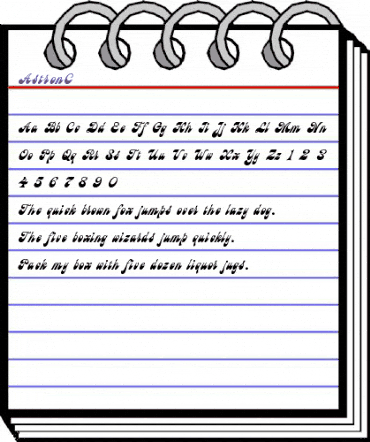 AstronC
Aa Bb Cc Dd Ee Ff Gg Hh Ii Jj Kk Ll Mm Nn
Oo Pp Qq Rr Ss Tt Uu Vv Ww Xx Yy Zz 1 2 3
4 5 6 7 8 9 0
The quick brown fox jumps over the lazy dog.
The five boxing wizards jump quickly.
Pack my box with five dozen liquor jugs.